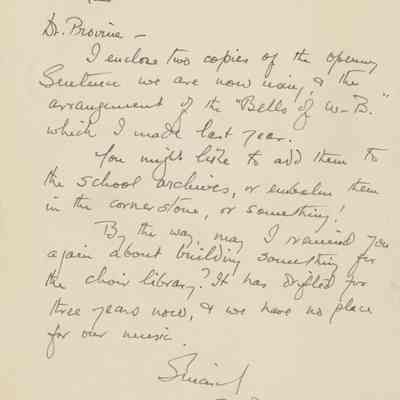 Dr. Provine –
I enclose two copies of the opening
Sentence we are now using, & the
arrangement of the "Bells of W-B."
which I made last year.
You might like to add them to
the school archives, or embalm them
in the cornerstone, or something!
By the way, may I remind you
again about building something for
the choir library? It has drifted for
three years now, & we have no place
for our music.